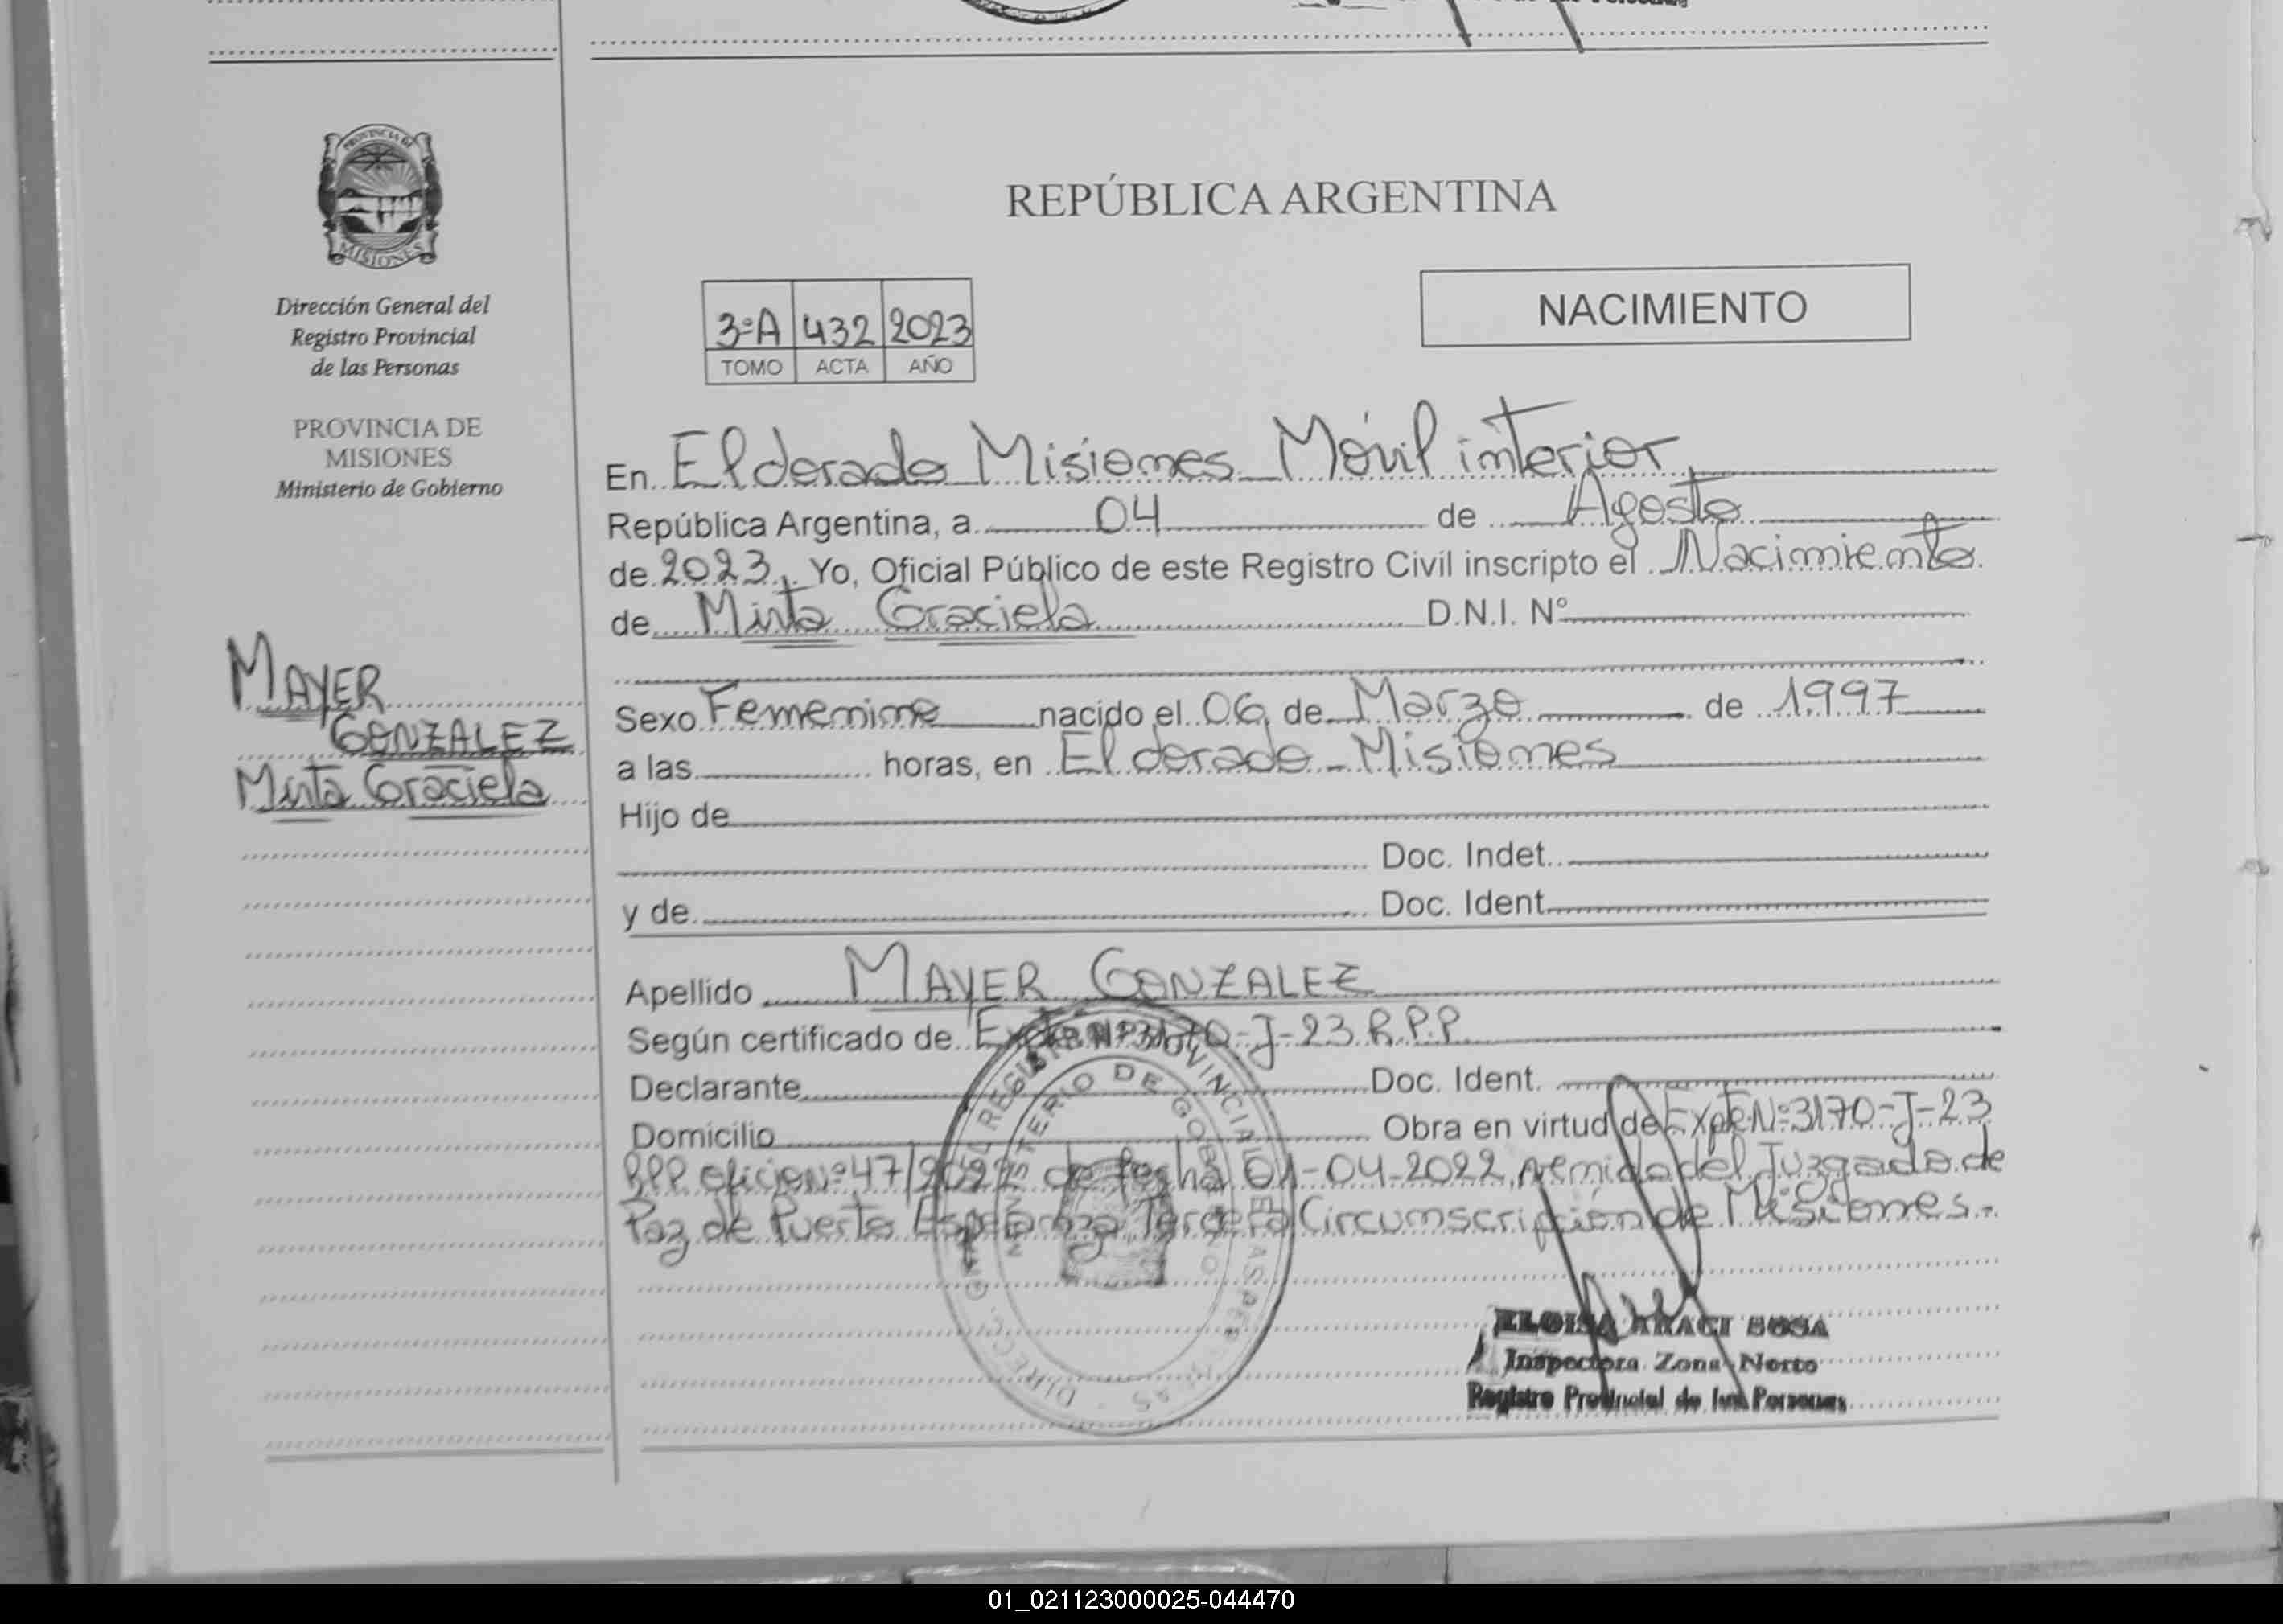 PROVINCIA DE
MISIONES
Dirección General del
Registro Provincial
de las Personas
PROVINCIA DE
MISIONES
Ministerio de Gobierno
MAYER
GONZALEZ
Mirta Graciela
REPÚBLICA ARGENTINA
3ºA 432 2023
TOMO ACTA AÑO
NACIMIENTO
En Eldorado Misiones Móvil interior
República Argentina, a 04 de Agosto
de 2023, Yo, Oficial Público de este Registro Civil inscripto el Nacimiento
de Mirta Graciela D.N.I. Nº
Sexo Femenino nacido el 06 de Marzo de 1997
a las horas, en Eldorado - Misiones
Hijo de
Doc. Indet.
y de Doc. Ident.
Apellido MAYER GONZALEZ
Según certificado de Expte Nº 3170-J-23 R.P.P
Declarante Doc. Ident.
Domicilio Obra en virtud de Expte Nº 3170-J-23
RPP oficio Nº 47/2022 de fecha 01-04-2022, del Juzgado de
Paz de Puerto Esperanza Tercera Circumscripción de Misiones.-
MINISTERIO DE GOBIERNO
ELOISA ARACI SOSA
Inspectora Zona Norte
Registro Provincial de las Personas
01_021123000025-044470